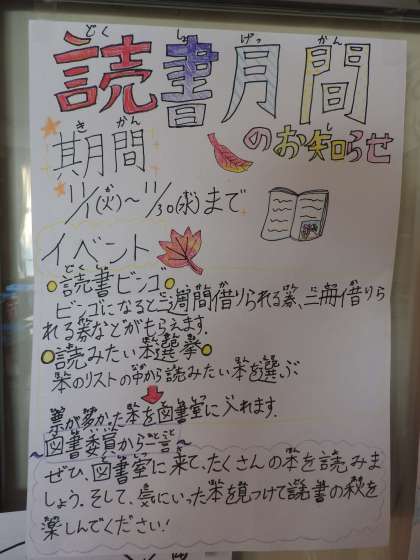 読書月間
のお知らせ
期間
11/1(火)～11/30(水)まで
イベント
読書ビンゴ
ビンゴになると二週間借りられる券、三冊借りら
れる券などがもらえます。
読みたい本選挙
本のリストの中から読みたい本を選ぶ
票が多かった本を図書室に入れます。
～図書委員から一言～
ぜひ、図書室に来て、たくさんの本を読みま
しょう。そして、気にいった本を見つけて読書の秋を
楽しんでください!